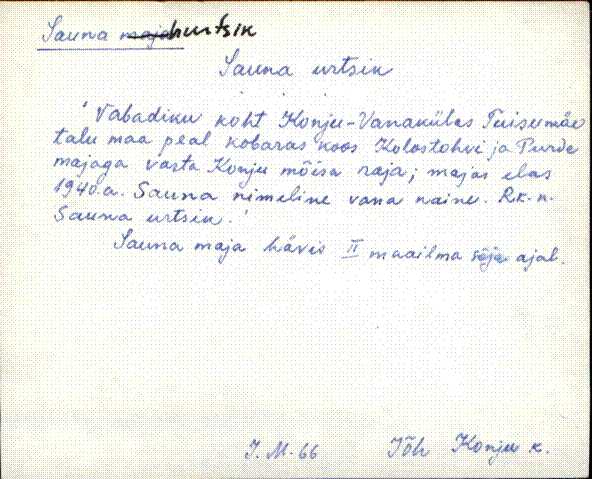 Sauna maja hurtsik
Sauna urtsik
'Vabadiku koht Konju-Vanakülas Tuisumäe
talu maa peal kobaras koos Kolostohvi ja Purde
majaga vasta Konju mõisa raja; majas elas
1940.a. Sauna nimeline vana naine. R.k.n.
Sauna urtsik.'
Sauna maja hävis II maailma sõja ajal.
J. M. 66 Jõh Konju k.